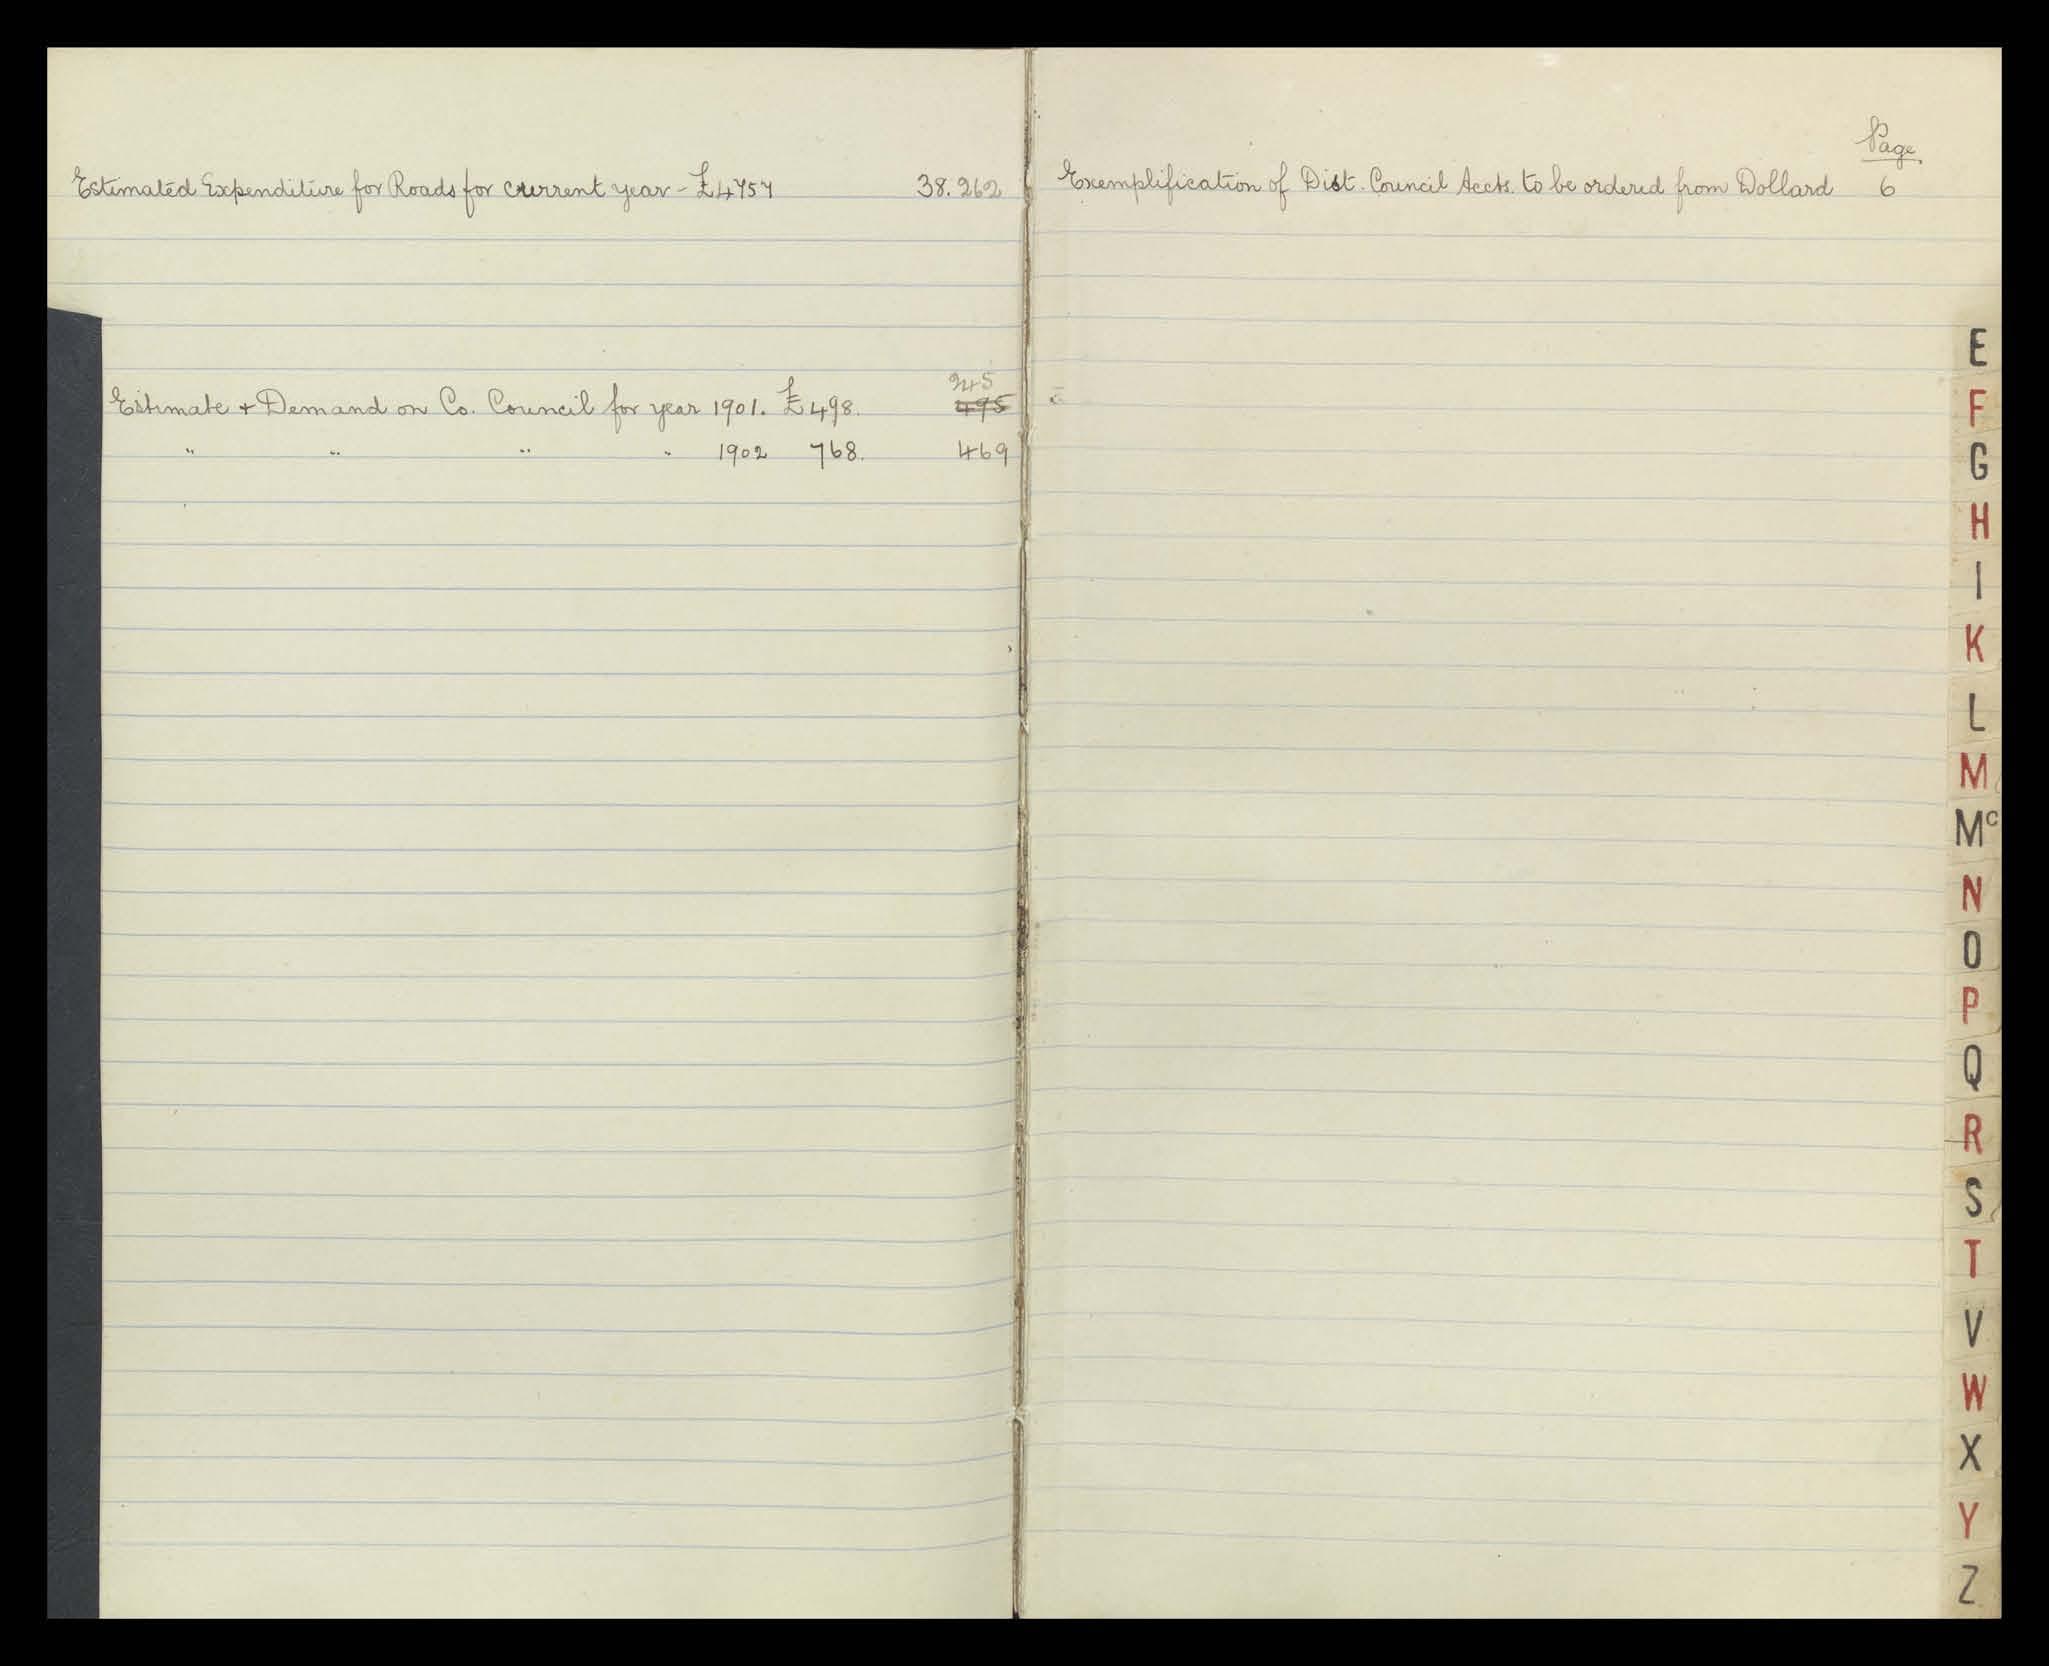 Estimated Expenditure for Roads for current year - £4757 38.262
245
Estimate & Demand on Co. Council for year 1901. £498. 495
" " " " 1902 768. 469
Page
Exemplification of Dist. Council Accts. to be ordered from Dollard 6
E
F
G
H
I
K
L
M
Mc
N
O
P
Q
R
S
T
V
W
X
Y
Z